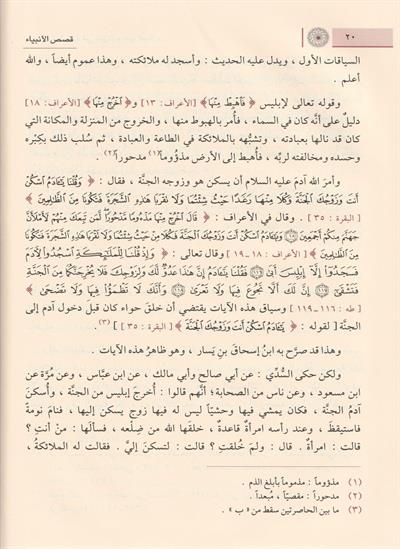 ٢٠ قصص الأنبياء
السياقات الأول ، ويدل عليه الحديث : وأسجد له ملائكته ، وهذا عموم أيضاً ، والله
أعلم .
وقوله تعالى لإبليس ﴿ فَاهْبِطْ مِنْهَا ﴾ [الأعراف: ١٣] و﴿ اخْرُجْ مِنْهَا ﴾ [الأعراف: ١٨]
دليلٌ على أنَّه كان في السماء ، فأُمر بالهبوط منها ، والخروج من المنزلة والمكانة التي
كان قد نالها بعبادته ، وتشبُّهه بالملائكة في الطاعة والعبادة ، ثم سُلب ذلك بكِبْره
وحسده ومخالفته لربِّه ، فأُهبط إلى الأرض مذؤوماً(١) مدحوراً(٢) .
وأمرَ الله آدم عليه السلام أن يسكن هو وزوجه الجنَّة ، فقال : ﴿ وَقُلْنَا يَا آدَمُ اسْكُنْ
أَنتَ وَزَوْجُكَ الْجَنَّةَ وَكُلَا مِنْهَا رَغَدًا حَيْثُ شِئْتُمَا وَلَا تَقْرَبَا هَٰذِهِ الشَّجَرَةَ فَتَكُونَا مِنَ الظَّالِمِينَ ﴾
[ البقرة : ٣٥ ] . وقال في الأعراف : ﴿ قَالَ اخْرُجْ مِنْهَا مَذْءُومًا مَّدْحُورًا لَّمَن تَبِعَكَ مِنْهُمْ لَأَمْلَأَنَّ
جَهَنَّمَ مِنكُمْ أَجْمَعِينَ ۝ وَيَا آدَمُ اسْكُنْ أَنتَ وَزَوْجُكَ الْجَنَّةَ فَكُلَا مِنْ حَيْثُ شِئْتُمَا وَلَا تَقْرَبَا هَٰذِهِ الشَّجَرَةَ فَتَكُونَا
مِنَ الظَّالِمِينَ ﴾ [ الأعراف : ١٨ـ١٩ ] وقال تعالى : ﴿ وَإِذْ قُلْنَا لِلْمَلَائِكَةِ اسْجُدُوا لِآدَمَ
فَسَجَدُوا إِلَّا إِبْلِيسَ أَبَىٰ ۝ فَقُلْنَا يَا آدَمُ إِنَّ هَٰذَا عَدُوٌّ لَّكَ وَلِزَوْجِكَ فَلَا يُخْرِجَنَّكُمَا مِنَ الْجَنَّةِ
فَتَشْقَىٰ ۝ إِنَّ لَكَ أَلَّا تَجُوعَ فِيهَا وَلَا تَعْرَىٰ ۝ وَأَنَّكَ لَا تَظْمَأُ فِيهَا وَلَا تَضْحَىٰ ﴾
[ طه : ١١٦ـ١١٩ ] وسياق هذه الآيات يقتضي أن خلقَ حواء كان قبل دخول آدم إلى
الجنَّة [ لقوله : ﴿ يَا آدَمُ اسْكُنْ أَنتَ وَزَوْجُكَ الْجَنَّةَ ﴾ [البقرة : ٣٥ ] ](٣) .
وهذا قد صرَّح به ابنُ إسحاق بن يَسار ، وهو ظاهرُ هذه الآيات .
ولكن حكى السُّدِّي : عن أبي صالح وأبي مالك ، عن ابن عبَّاس ، وعن مُرَّة عن
ابن مسعود ، وعن ناس من الصحابة؛ أنَّهم قالوا : أُخرجَ إبليس من الجنَّة ، وأُسكنَ
آدمُ الجنَّة ، فكان يمشي فيها وحشيّاً ليس له فيها زوج يسكن إليها ، فنامَ نومةً
فاستيقظَ ، وعند رأسه امرأةٌ قاعدةٌ ، خلقَها الله من ضِلَعه ، فسألَها : منْ أنتِ ؟
قالت : امرأةٌ . قال : ولمَ خُلقتِ ؟ قالت : لتسكنَ إليَّ . فقالت له الملائكةُ ،
(١) مذؤوماً : مذموماً بأبلغ الذم .
(٢) مدحوراً : مقصيّاً ، مُبعداً .
(٣) ما بين الحاصرتين سقط من « ب » .